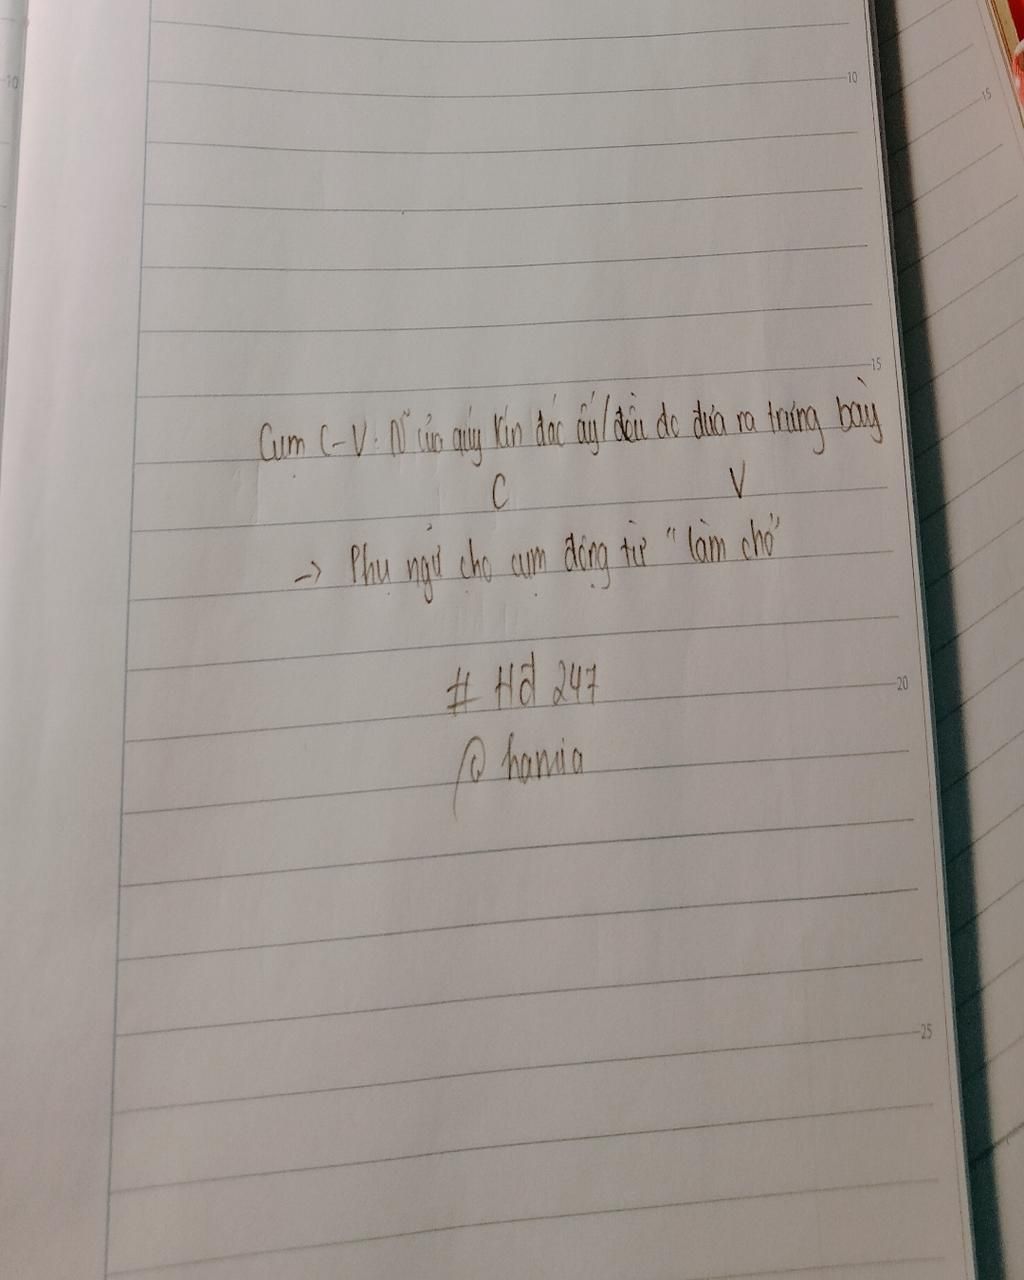 10
10
15
15
Cụm C-V: N~ của quý kín đáo ấy/đều đc đưa ra trưng bày
C V
-> Phụ ngữ cho cụm động từ "làm cho"
20
# Hđ 247
@ hamia
25